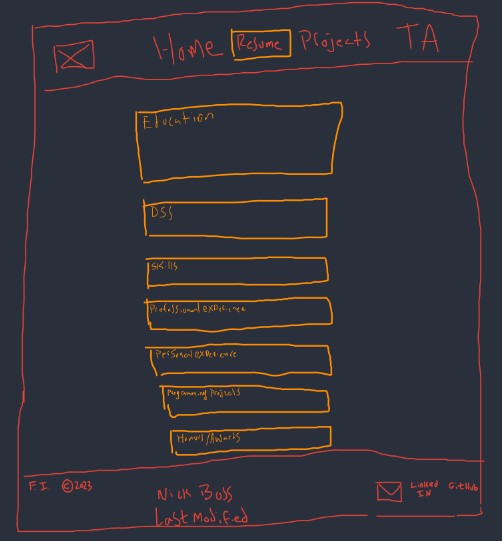 Home Resume Projects TA
Education
DSS
Skills
Professional experience
Personal experience
Programming Projects
Honors/Awards
F.I. ©2023
Nick Boss
Last Modified
Linked IN
GitHub